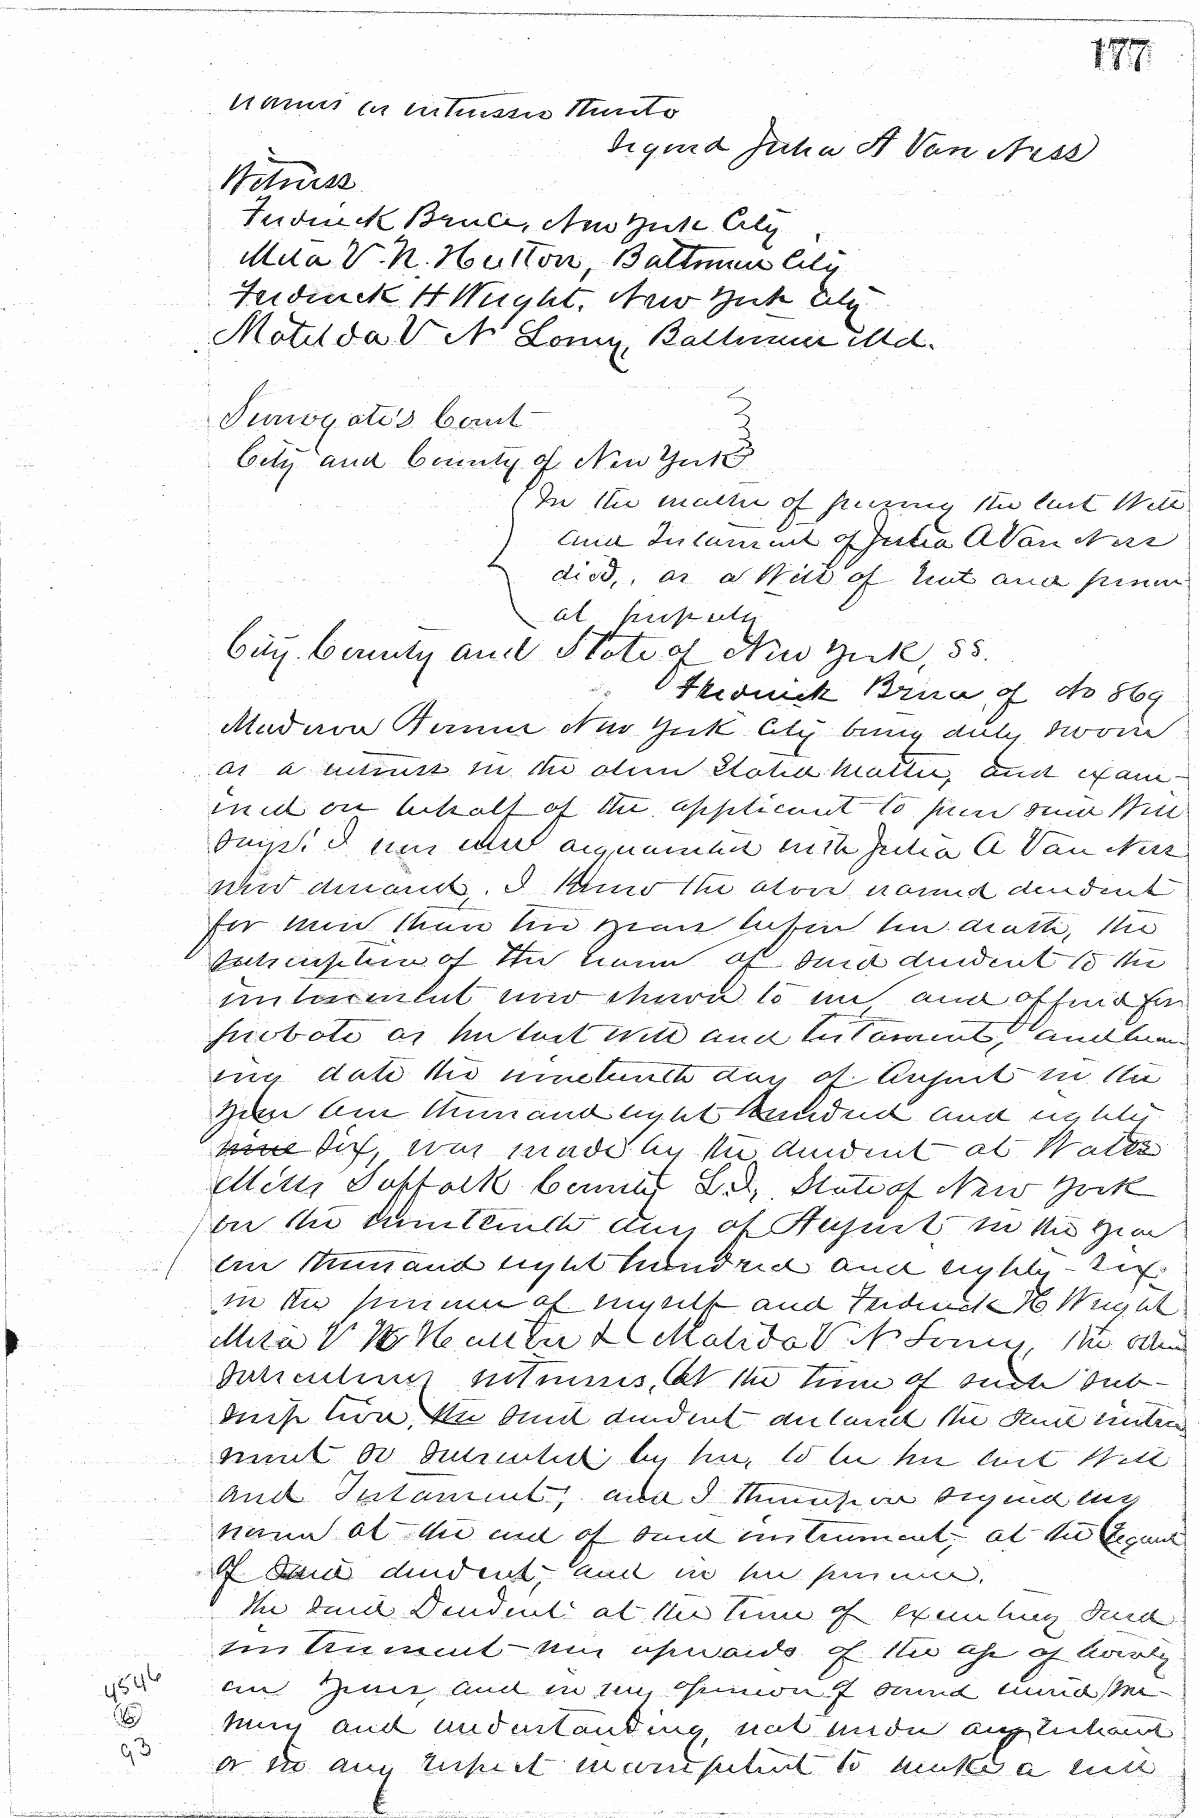 177
names as witnesses thereto
Signed Julia A Van Ness
Witness
Frederick Bruce, New York City
Meta V. N. Hutton, Baltimore City
Frederick H Wright, New York City
Matilda V N Lorny, Baltimore Md.
Surrogate's Court
City and County of New York
In the matter of proving the last Will
and Testament of Julia A Van Ness
dec'd, as a Will of real and person
al property
City County and State of New York, SS.
Frederick Bruce, of No 869
Madison Avenue New York City being duly sworn
as a witness in the above Stated Matter, and exam-
ined on behalf of the applicant to prove said Will
says: I was well acquainted with Julia A Van Ness
now deceased, I knew the above named decedent
for more than ten years before her death, the
subscription of the name of said decedent to the
instrument now shown to me, and offered for
probate as her last will and testament, and bear
ing date the nineteenth day of August in the
year one thousand eight hundred and eighty
nine six, was made by the decedent at Water
Mills Suffolk County L.I., State of New York
on the nineteenth day of August in the year
one thousand eight hundred and eighty-six
in the presence of myself and Frederick H Wright
Meta V N Hutton & Matilda V N Lorny, the other
subscribing witnesses, At the time of such sub-
scription, the said decedent declared the said instru
ment so subscribed by her, to be her last Will
and Testament, and I thereupon signed my
name at the end of said instrument, at the request
of said decedent, and in her presence.
The said Decedent at the time of executing said
instrument was upwards of the age of twenty
one years, and in my opinion of sound mind, me-
mory and understanding, not under any restraint
or in any respect incompetent to make a will
4546
93